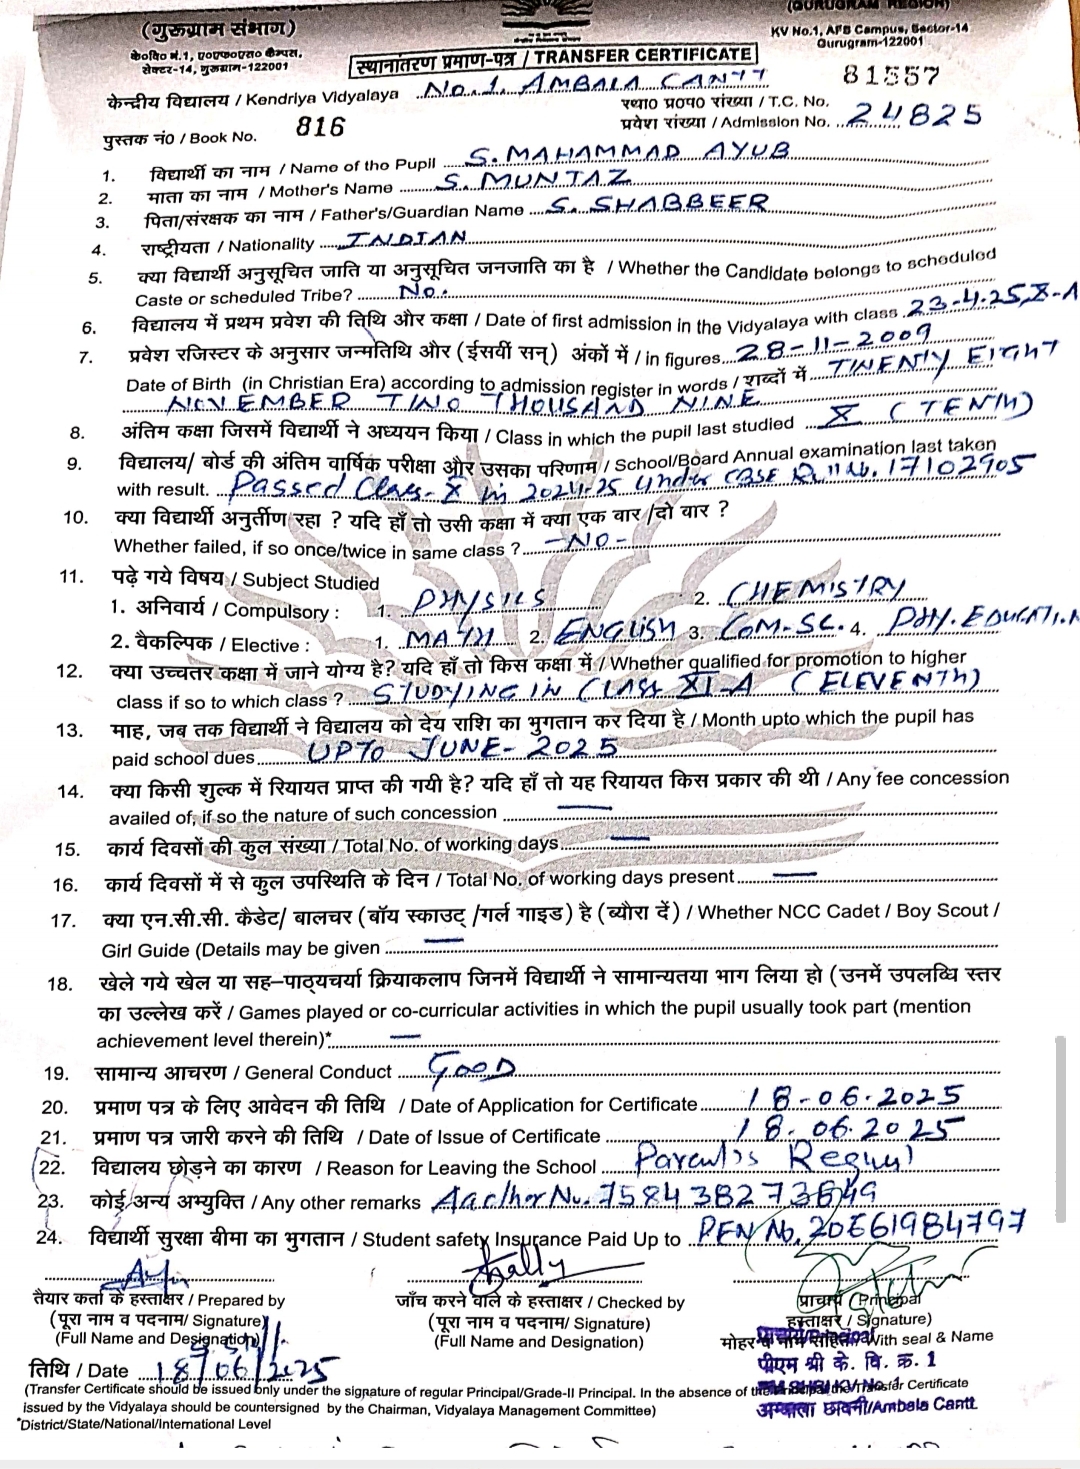 (गुरुग्राम संभाग)
(GURUGRAM REGION)
के०वि० नं.1, ए०एफ०एस० कैम्पस,
सेक्टर-14, गुरूग्राम-122001
KV No.1, AFB Campus, Sector-14
Gurugram-122001
स्थानांतरण प्रमाण-पत्र / TRANSFER CERTIFICATE
केन्द्रीय विद्यालय / Kendriya Vidyalaya No. 1, AMBALA CANTT
81557
स्था० प्र०प० संख्या / T.C. No.
पुस्तक नं0 / Book No. 816
प्रवेश संख्या / Admission No. 24825
1. विद्यार्थी का नाम / Name of the Pupil S. MAHAMMAD AYUB
2. माता का नाम / Mother's Name S. MUNTAZ
3. पिता/संरक्षक का नाम / Father's/Guardian Name S. SHABBEER
4. राष्ट्रीयता / Nationality INDIAN
5. क्या विद्यार्थी अनुसूचित जाति या अनुसूचित जनजाति का है / Whether the Candidate belongs to scheduled
Caste or scheduled Tribe? No.
6. विद्यालय में प्रथम प्रवेश की तिथि और कक्षा / Date of first admission in the Vidyalaya with class 23-4-25, X-A
7. प्रवेश रजिस्टर के अनुसार जन्मतिथि और (ईसवीं सन्) अंकों में / in figures 28-11-2009
Date of Birth (in Christian Era) according to admission register in words / शब्दों में TWENTY EIGHT
NOVEMBER TWO THOUSAND NINE
8. अंतिम कक्षा जिसमें विद्यार्थी ने अध्ययन किया / Class in which the pupil last studied X (TENTH)
9. विद्यालय/ बोर्ड की अंतिम वार्षिक परीक्षा और उसका परिणाम / School/Board Annual examination last taken
with result. Passed Class-X in 2024-25 under CBSE Roll No. 17102905
10. क्या विद्यार्थी अनुर्तीण रहा ? यदि हाँ तो उसी कक्षा में क्या एक वार /दो वार ?
Whether failed, if so once/twice in same class ? -NO-
11. पढ़े गये विषय / Subject Studied
1. अनिवार्य / Compulsory : 1. PHYSICS 2. CHEMISTRY
2. वैकल्पिक / Elective : 1. MATH 2. ENGLISH 3. COM-SC. 4. PHY. EDUCATION
12. क्या उच्चतर कक्षा में जाने योग्य है? यदि हाँ तो किस कक्षा में / Whether qualified for promotion to higher
class if so to which class ? STUDYING IN CLASS XI-A (ELEVENTH)
13. माह, जब तक विद्यार्थी ने विद्यालय को देय राशि का भुगतान कर दिया है / Month upto which the pupil has
paid school dues UPTO JUNE-2025
14. क्या किसी शुल्क में रियायत प्राप्त की गयी है? यदि हाँ तो यह रियायत किस प्रकार की थी / Any fee concession
availed of, if so the nature of such concession —
15. कार्य दिवसों की कुल संख्या / Total No. of working days —
16. कार्य दिवसों में से कुल उपस्थिति के दिन / Total No. of working days present —
17. क्या एन.सी.सी. कैडेट/ बालचर (बॉय स्काउट् /गर्ल गाइड) है (ब्यौरा दें) / Whether NCC Cadet / Boy Scout /
Girl Guide (Details may be given —
18. खेले गये खेल या सह-पाठ्यचर्या क्रियाकलाप जिनमें विद्यार्थी ने सामान्यतया भाग लिया हो (उनमें उपलब्धि स्तर
का उल्लेख करें / Games played or co-curricular activities in which the pupil usually took part (mention
achievement level therein)* —
19. सामान्य आचरण / General Conduct GOOD
20. प्रमाण पत्र के लिए आवेदन की तिथि / Date of Application for Certificate 18-06-2025
21. प्रमाण पत्र जारी करने की तिथि / Date of Issue of Certificate 18.06.2025
22. विद्यालय छोड़ने का कारण / Reason for Leaving the School Parents Request
23. कोई अन्य अभ्युक्ति / Any other remarks Aadhar No. 758438273649
24. विद्यार्थी सुरक्षा बीमा का भुगतान / Student safety Insurance Paid Up to PEN No. 20561984797
तैयार कर्ता के हस्ताक्षर / Prepared by
(पूरा नाम व पदनाम/ Signature)
(Full Name and Designation)
जाँच करने वाले के हस्ताक्षर / Checked by
(पूरा नाम व पदनाम/ Signature)
(Full Name and Designation)
प्राचार्य (Principal
हस्ताक्षर / Signature)
मोहर व नाम सहित/With seal & Name
प्राचार्य/Principal
पीएम श्री के. वि. क्र. 1
PM SHRI KV No. 1
अम्बाला छावनी/Ambala Cantt.
तिथि / Date 18/06/2025
(Transfer Certificate should be issued only under the signature of regular Principal/Grade-II Principal. In the absence of the Principal the Transfer Certificate
issued by the Vidyalaya should be countersigned by the Chairman, Vidyalaya Management Committee)
*District/State/National/International Level